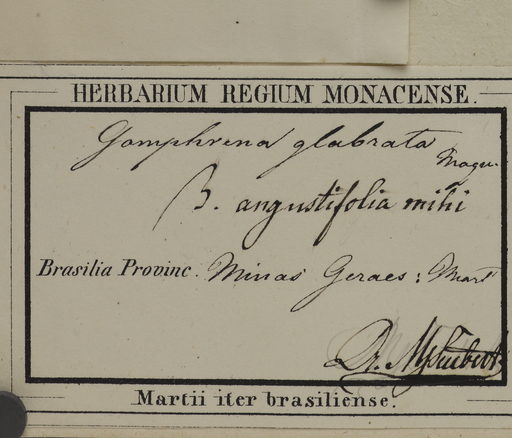 HERBARIUM REGIUM MONACENSE.
Gomphrena glabrata
Moqu.
β. angustifolia mihi
Brasilia Provinc. Minas Geraes: Mart
Dr. M Seubert
Martii iter brasiliense.